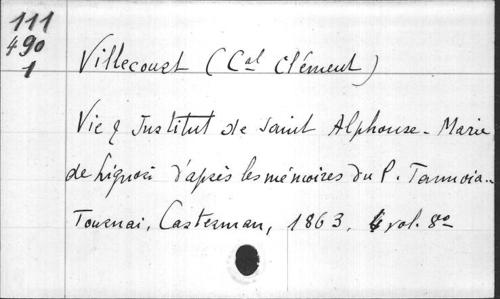 111
490
1
Villecourt (Cal Clément)
Vie & Institut de Saint Alphonse-Marie
de Liguori d'après les mémoires du P. Tannoia.
Tournai, Casterman, 1863, 4 vol. 8º